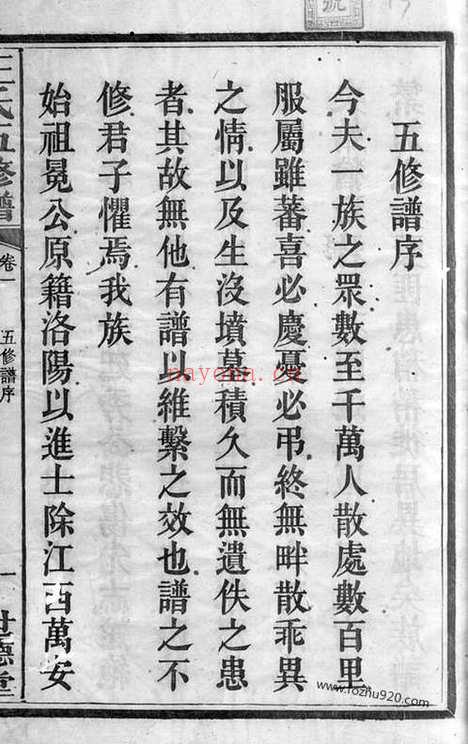 五修譜序
今夫一族之眾數至千萬人散處數百里
服屬雖蕃喜必慶憂必弔終無畔散乖異
之情以及生沒墳墓積久而無遺佚之患
者其故無他有譜以維繫之效也譜之不
修君子懼焉我族
始祖冕公原籍洛陽以進士除江西萬安
氏五修譜
卷一
五修譜序
一
世德堂
號
nayona.cn
www.fozhu920.com